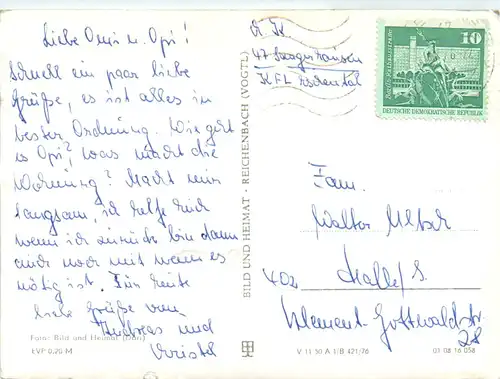 Liebe Omi u. Opi!
Schnell ein paar liebe
Grüße, es ist alles in
bester Ordnung. Wie geht
es Opi?, was macht die
Wohnung? Macht nur
langsam, ich helfe Euch
wenn ich zurück bin dann
auch noch mit wenn es
nötig ist. Für heute
liebe Grüße von
Andreas und
Foto: Bild und Heimat
EVP 0,20 M
BILD UND HEIMAT · REICHENBACH (VOGTL)
47 Sangerhausen
KFL
10
DEUTSCHE DEMOKRATISCHE REPUBLIK
Fam.
Walter
402 Halle/S.
Klement-Gottwaldstr.
28
V 11 50 A 1/B 421/76
01 08 16 058